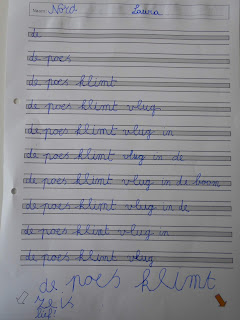 Naam: Nora Laura
de
de poes
de poes klimt
de poes klimt vlug
de poes klimt vlug in
de poes klimt vlug in de
de poes klimt vlug in de boom
de poes klimt vlug in de
de poes klimt vlug in
de poes klimt vlug
de poes klimt
ze is
lief